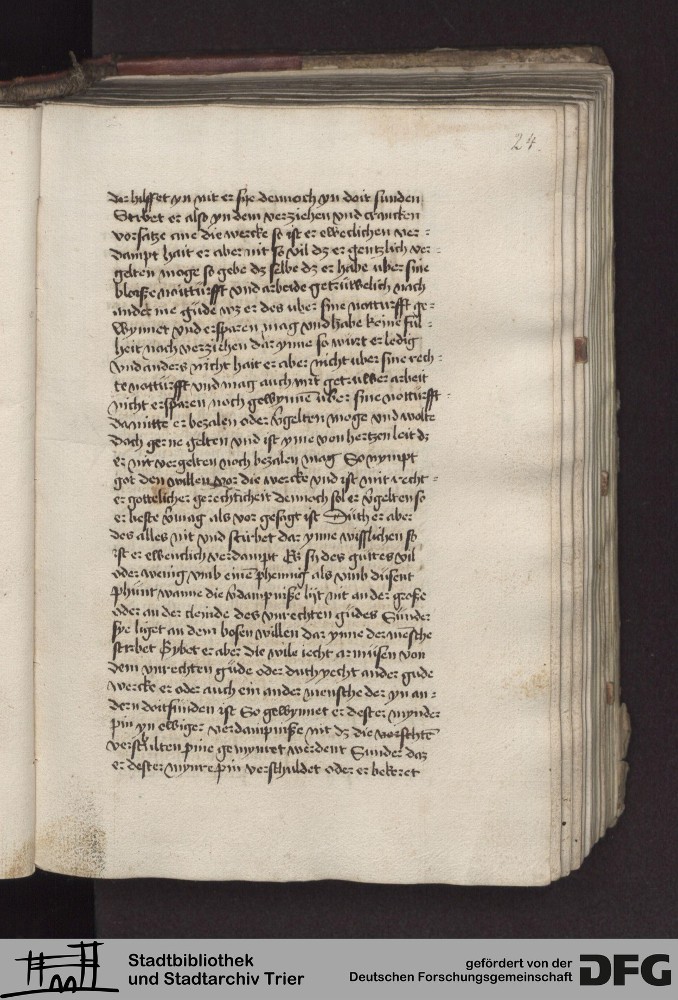 24.
dar hilffet yn nit er sÿe dennoch yn doit sunden
Stirbet er also yn dem verziehen vnd crancken
vorsatze ane die wercke so ist er eweclichen ver-
dampt hait er aber nit so vil dz er gentzlich ver-
gelten moge so gebe dz selbe dz er habe uber sine
bloiße noitturfft vnd arbeide getruwelich nach
ander me gude wz er des uber sine notturfft ge-
wynnet vnd ersparen mag vnd habe keine ful-
heit noch verziehen dar ynne so wirt er ledig
vnd anders nicht hait er aber nicht uber sine rech-
te notturfft vnd mag auch mit getruwer arbeit
nicht ersparen noch gewynne uber sine notturfft
da mitte er bezalen oder v̄gelten moge vnd wolte
doch gerne gelten vnd ist yme von hertzen leit dz
er nit vergelten noch bezalen mag So nympt
got den willen vor die wercke vnd ist mit recht-
er gottelicher gerechticheit dennoch sol er v̄gelten so
er beste v̄mag als vor gesagt ist Duth er aber
des alles nit vnd stirbet dar ynne wissslichen so
ist er ewenclich verdampt Es sy des guttes vil
oder wenig vmb eine͞ phennig als vmb dusent
phunt wanne die v̄dampniße lijt nit an der große
oder an der cleinde des vnrechten gudes Sunder
sye liget an dem bosen willen dar ynne der mensche
stirbet Gybet er aber die wile iecht armusen von
dem vnrechten gude oder duth yecht ander gude
wercke er oder auch ein ander mensche der yn an-
dern doitsunden ist So gewynnet er dester mynder
pin yn ewiger verdampniße nit dz die vorschte͞
verschulten pine gemynret werdent Sunder daz
er dester mynre pin verschuldet oder er bekeret
Stadtbibliothek
und Stadtarchiv Trier
gefördert von der
Deutschen Forschungsgemeinschaft
DFG